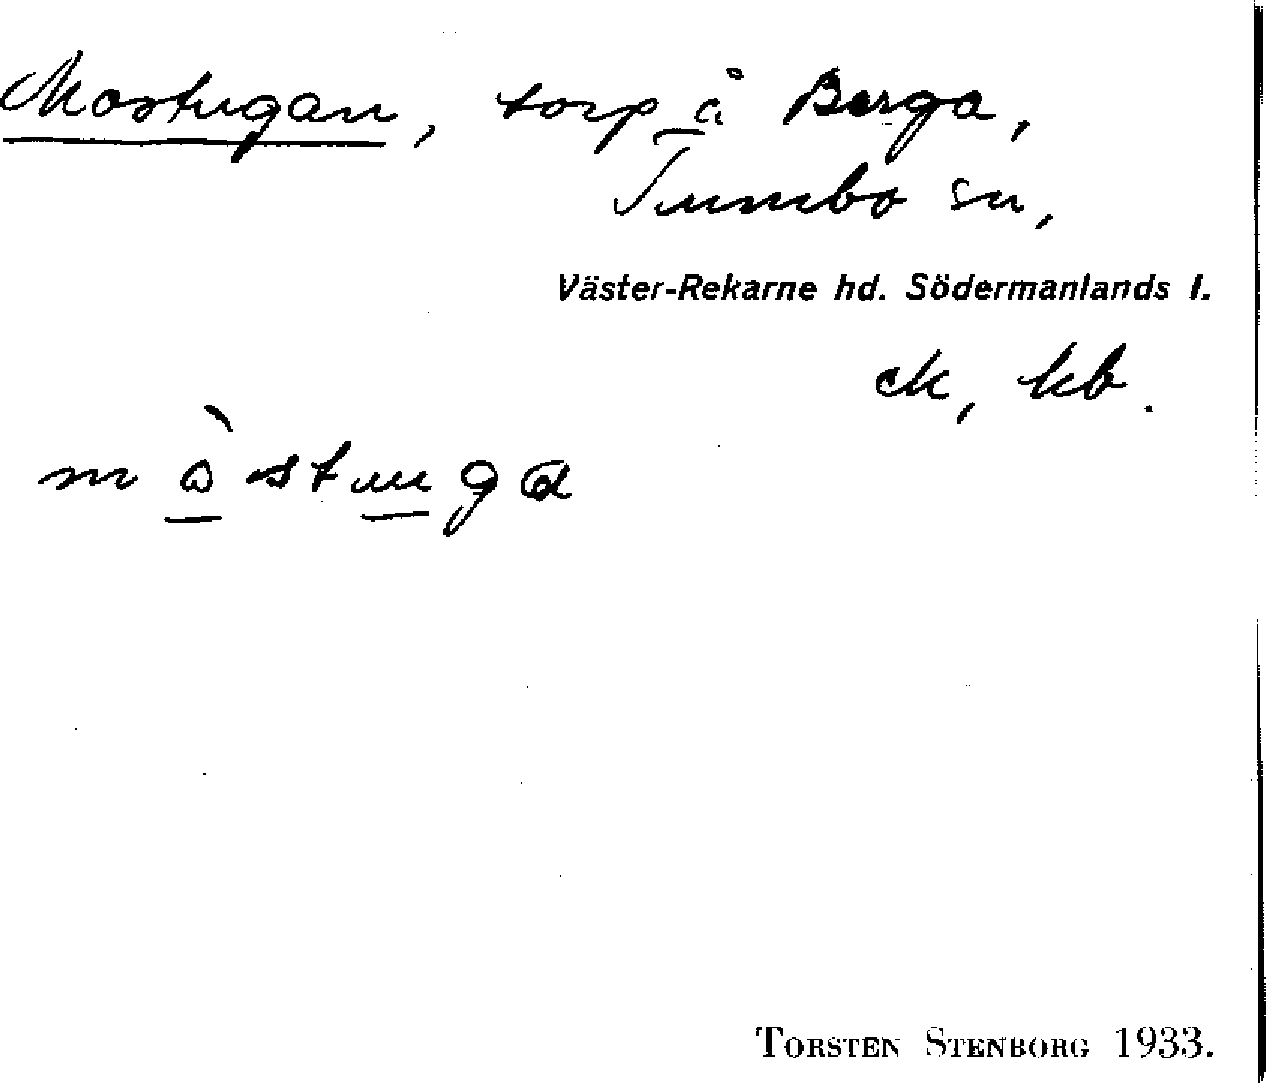 Mostugan, torp å Berga,
Tumbo sn,
Väster-Rekarne hd. Södermanlands l.
ek, kb.
TORSTEN STENBORG 1933.